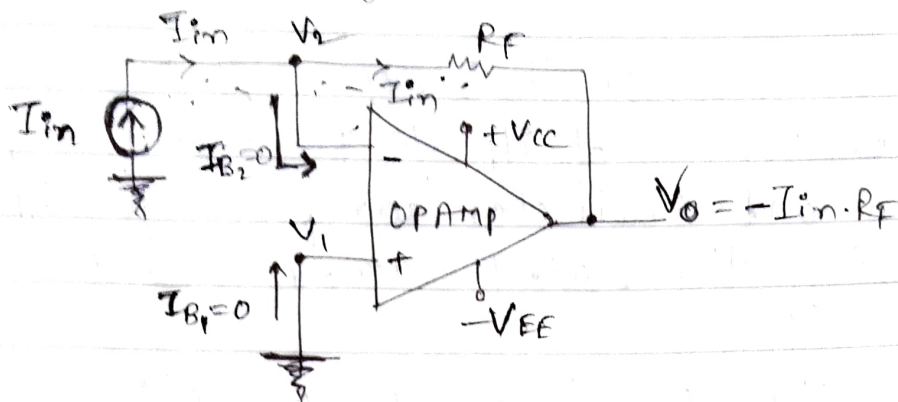 Iin
V2
RF
Iin
Iin
IB2=0
-
+VCC
OPAMP
V1
+
Vo = -Iin.RF
IB1=0
-VEE